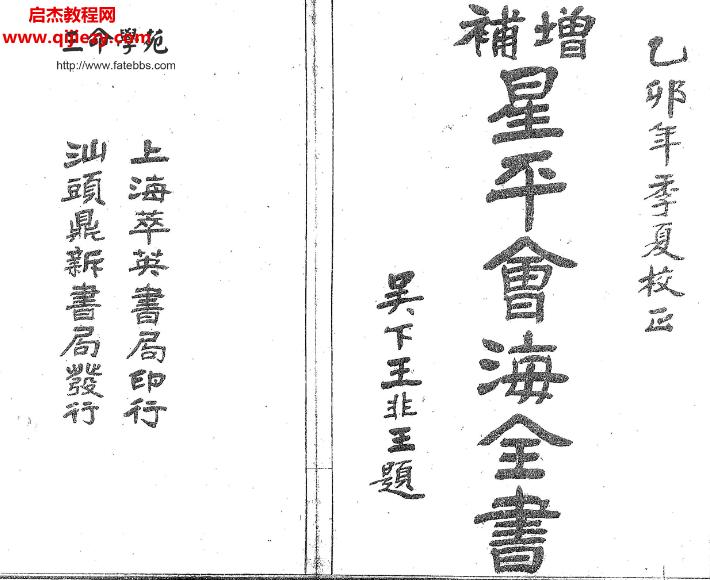 启杰教程网
命學苑
http://www.fatebbs.com
乙卯年季夏校正
增補
星平會海全書
吴下王非王題
上海萃英書局印行
汕頭鼎新書局發行